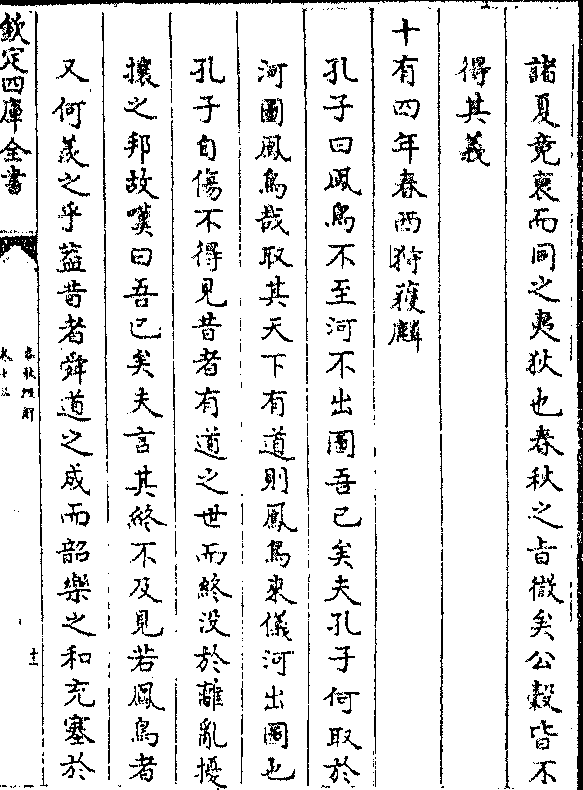 諸夏竟衰而同之夷狄也春秋之㫖微矣公穀皆不
得其義
十有四年春西狩獲麟
孔子曰鳳鳥不至河不出圖吾已矣夫孔子何取於
河圖鳳鳥哉取其天下有道則鳳鳥來儀河出圖也
孔子自傷不得見昔者有道之世而終没於離亂擾
攘之邦故嘆曰吾已矣夫言其終不及見若鳳鳥者
又何羡之乎葢昔者舜道之成而韶樂之和充塞於
欽定四庫全書